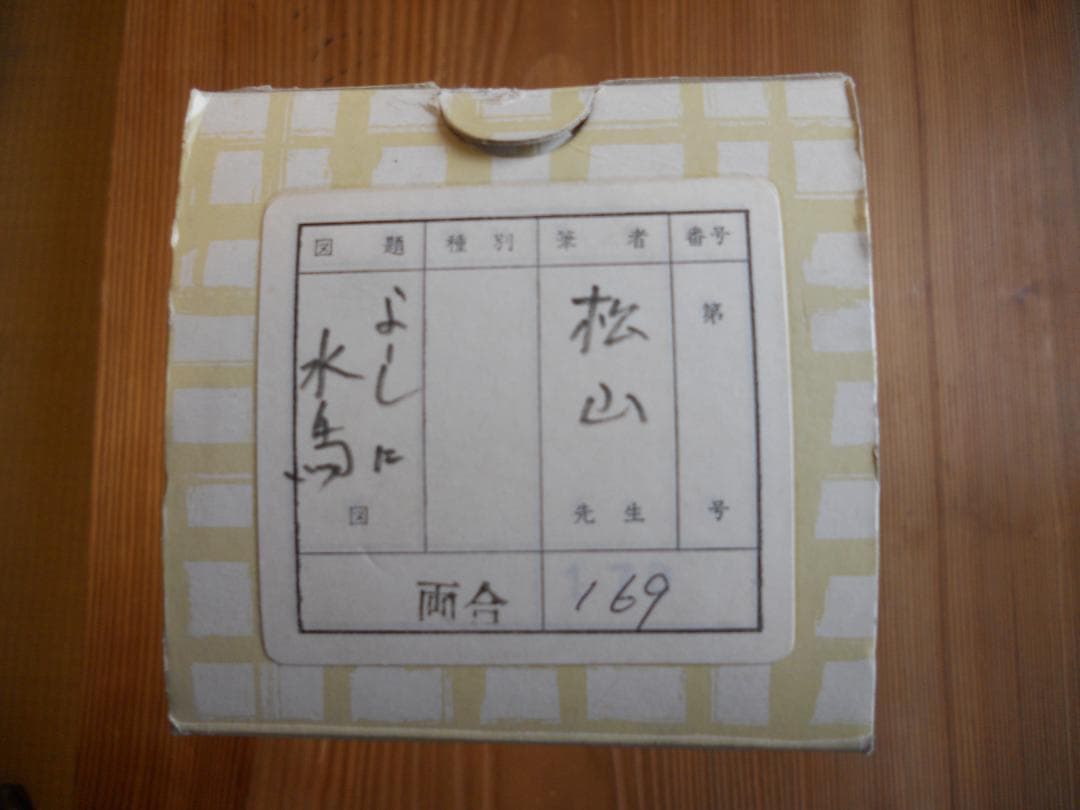 図題 種別 筆者 番号
よしに
水鳥
図
松山
先生
第
号
169